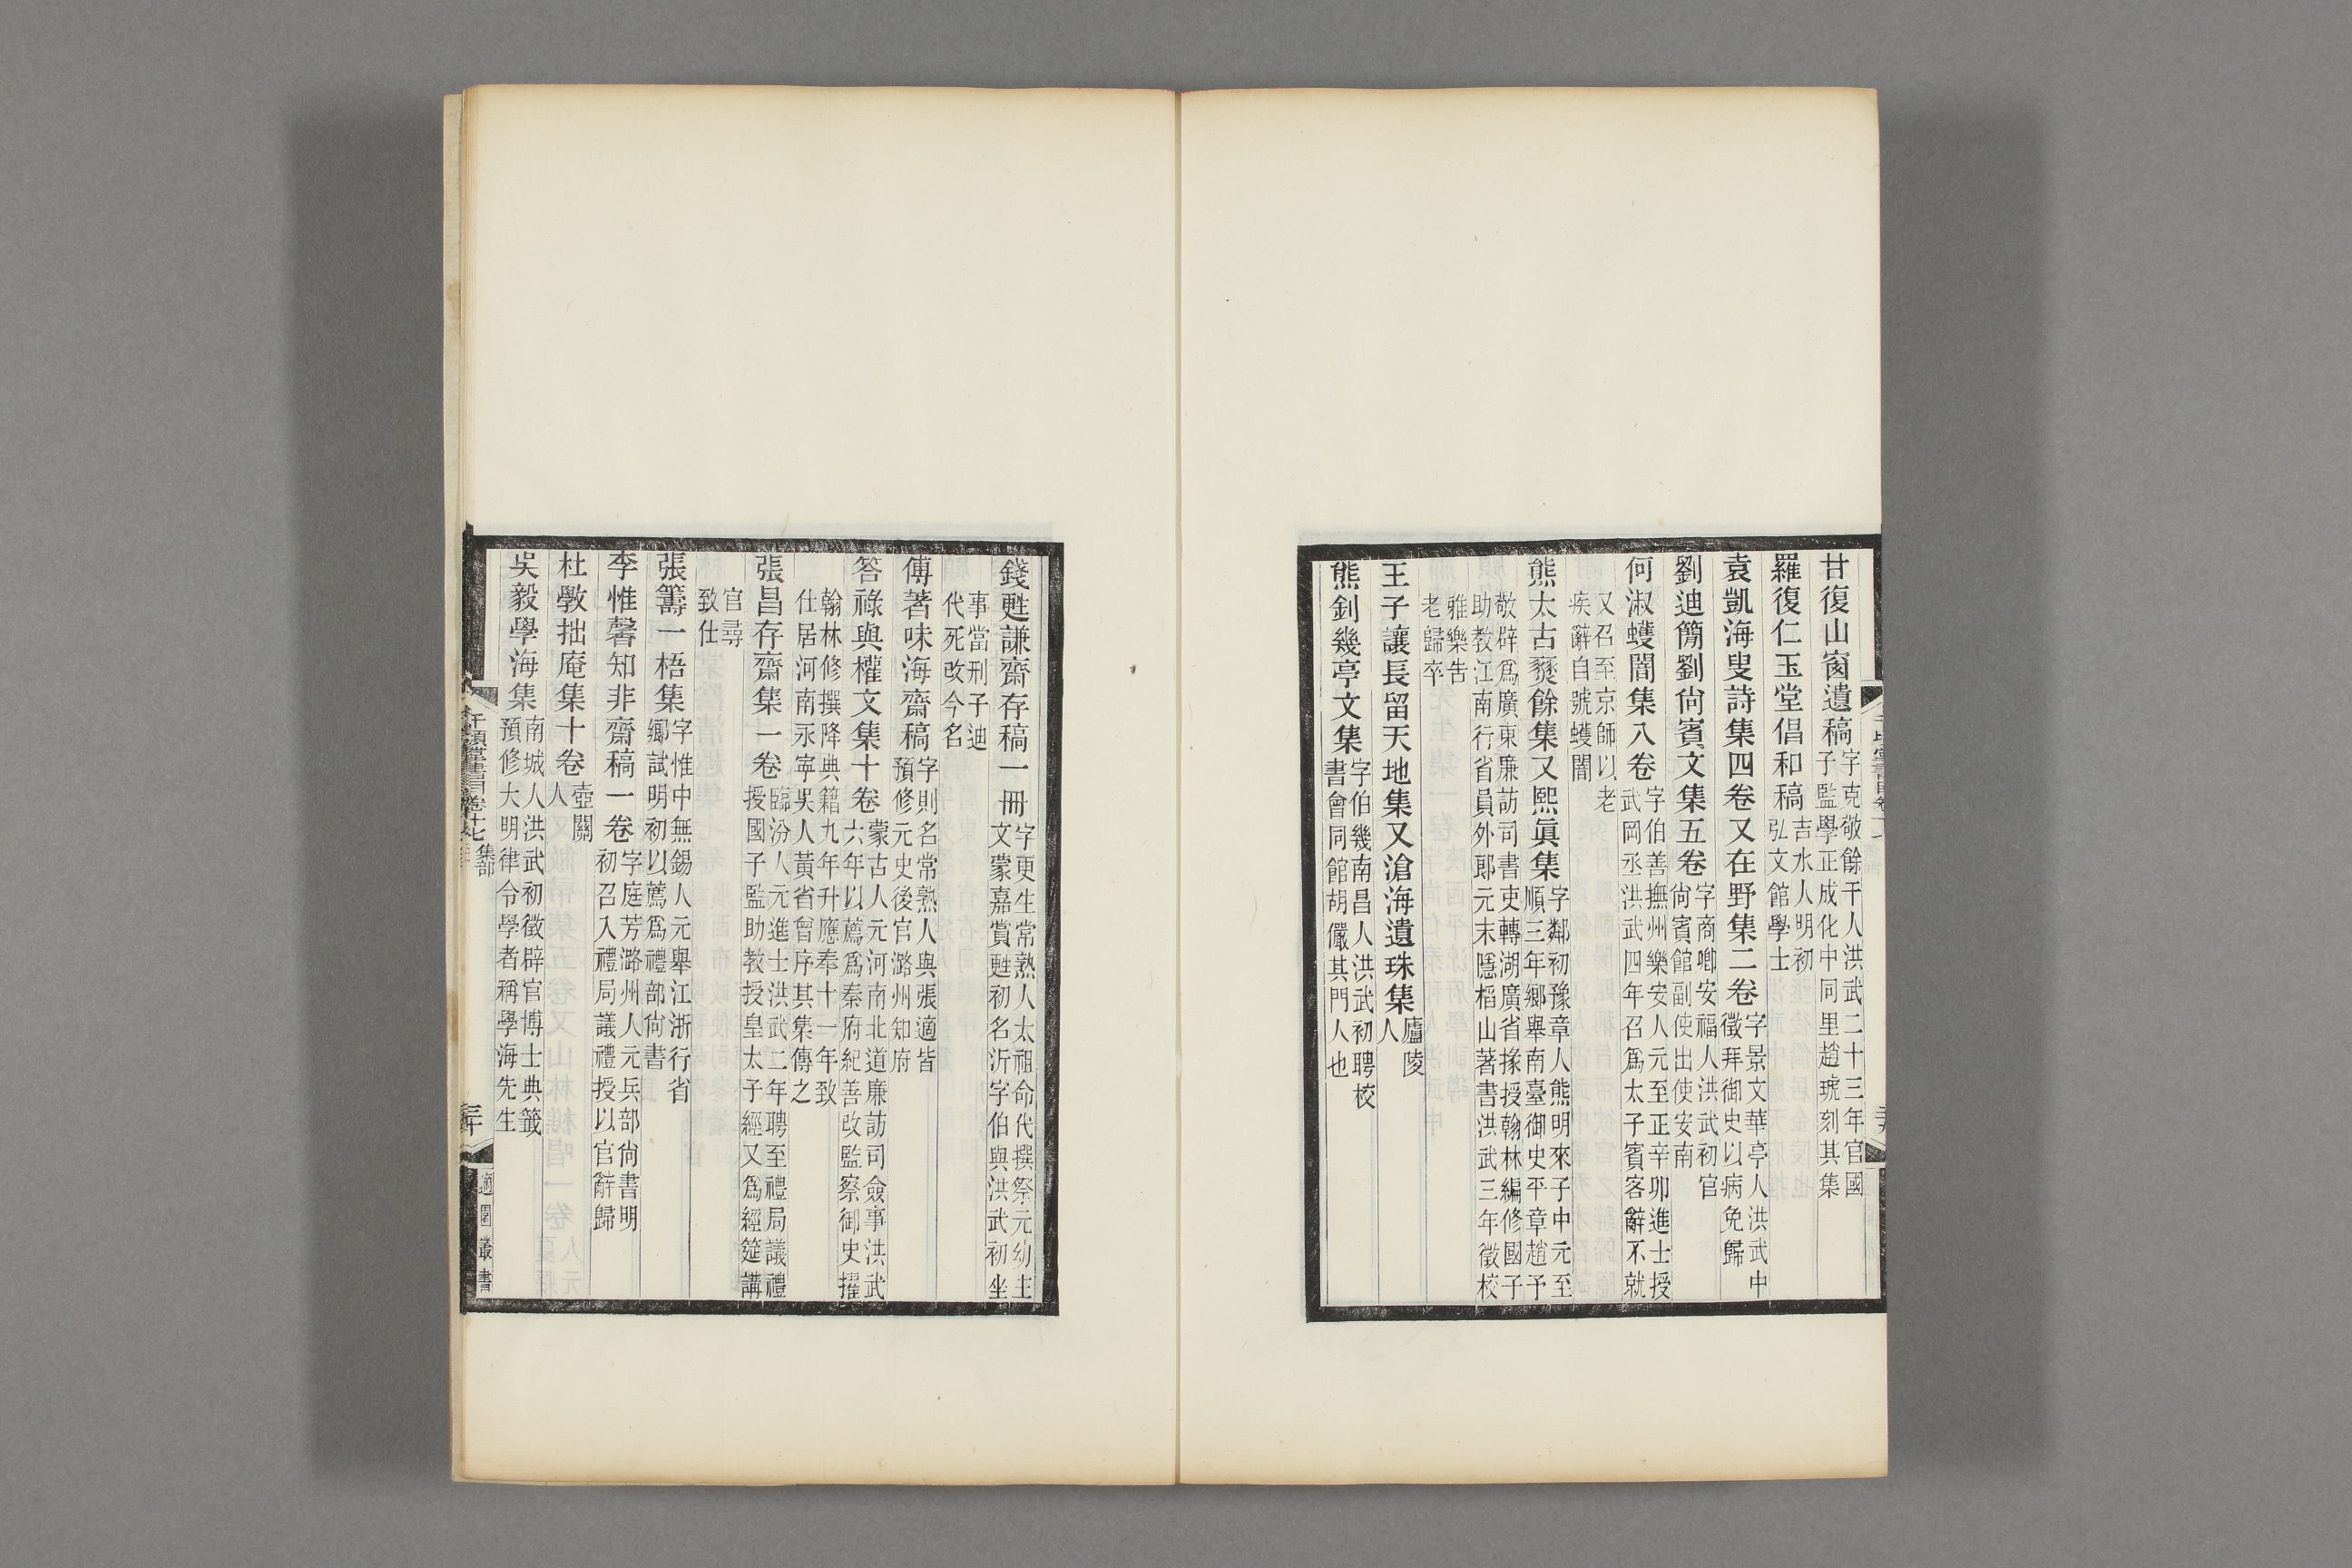 甘復山窗遺稿字克敬餘干人洪武二十三年官國子監學正成化中同里趙琥刻其集
羅復仁玉堂倡和稿吉水人明初弘文館學士
袁凱海叟詩集四卷又在野集二卷字景文華亭人洪武中徵拜御史以病免歸
劉迪簡劉尙賓文集五卷字商卿安福人洪武初官尙賓館副使出使安南
何淑蠖闇集八卷字伯善撫州樂安人元至正辛卯進士授武岡丞洪武四年召爲太子賓客辭不就
又召至京師以老疾辭自號蠖闇
熊太古爂餘集又熙眞集字鄰初豫章人熊明來子中元至順三年鄉舉南臺御史平章趙予
敬辟爲廣東廉訪司書吏轉湖廣省掾授翰林編修國子助教江南行省員外郎元末隱稻山著書洪武三年徵校
雅樂告老歸卒
王子讓長留天地集又滄海遺珠集廬陵人
熊釗幾亭文集字伯幾南昌人洪武初聘校書會同館胡儼其門人也
錢甦謙齋存稿一冊字更生常熟人太祖命代撰祭元幼主文蒙嘉賞甦初名沂字伯與洪武初坐
事當刑子迪代死改今名
傅著味海齋稿字則名常熟人與張適皆預修元史後官潞州知府
答祿與權文集十卷蒙古人元河南北道廉訪司僉事洪武六年以薦爲秦府紀善改監察御史擢
翰林修撰降典籍九年升應奉十一年致仕居河南永寧吳人黃省曾序其集傳之
張昌存齋集一卷臨汾人元進士洪武二年聘至禮局議禮授國子監助教授皇太子經又爲經筵講
官尋致仕
張籌一梧集字惟中無錫人元舉江浙行省鄉試明初以薦爲禮部尙書
李惟馨知非齋稿一卷字庭芳潞州人元兵部尙書明初召入禮局議禮授以官辭歸
杜斅拙庵集十卷壺關人
吳毅學海集南城人洪武初徵辟官博士典籤預修大明律令學者稱學海先生
千頃堂書目卷十七 集部
三十
適園叢書